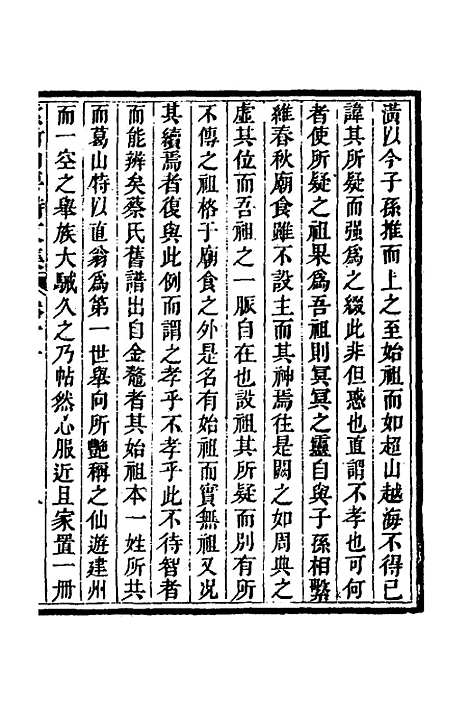 潢以今子孫推而上之至始祖而如超山越海不得已
諱其所疑而强爲之綴此非但惑也直謂不孝也可何
者使所疑之祖果爲吾祖則冥冥之靈自與子孫相繄
維春秋廟食雖不設主而其神焉往是闕之如周典之
虛其位而吾祖之一脈自在也設祖其所疑而別有所
不傳之祖格于廟食之外是名有始祖而實無祖又况
其續焉者復與此例而謂之孝乎不孝乎此不待智者
而能辨矣蔡氏舊譜出自金鼇者其始祖本一姓所共
而葛山特以直翁爲第一世舉向所艷稱之仙遊建州
而一空之舉族大駴久之乃帖然心服近且家置一册